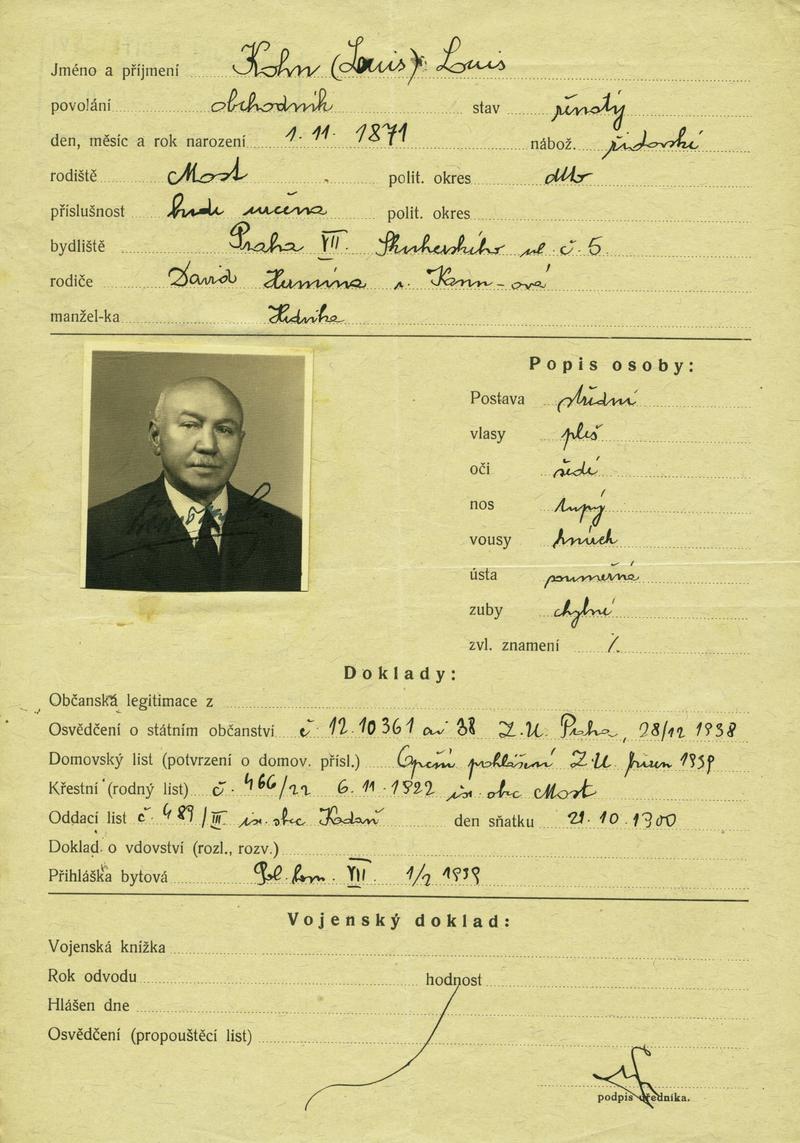 Jméno a příjmení Kohn (Louis) Luis
povolání obchodník stav ženatý
den, měsíc a rok narození 1. 11. 1871 nábož. židovské
rodiště Most polit. okres dtto
příslušnost bude určena polit. okres
bydliště Praha VII. ul č. 5
rodiče David Hermína r. -ová
manžel-ka Hedvika
Popis osoby:
Postava střední
vlasy pleš
oči šedé
nos tupý
vousy
ústa souměrná
zuby chybné
zvl. znamení /.
Doklady:
Občanská legitimace z
Osvědčení o státním občanství č 12.10361 ai 38 Z.U. Praha, 28/12 1938
Domovský list (potvrzení o domov. přísl.) prohlášení Z.U 1939
Křestní (rodný list) č. 466/22 6. 11. 1922 isr. obc Most
Oddací list č 489/III. isr. obc Kadaň den sňatku 21. 10. 1900
Doklad o vdovství (rozl., rozv.)
Přihláška bytová Pol. kom. VII. 1/2 1939
Vojenský doklad:
Vojenská knížka
Rok odvodu hodnost
Hlášen dne
Osvědčení (propouštěcí list)
podpis úředníka.